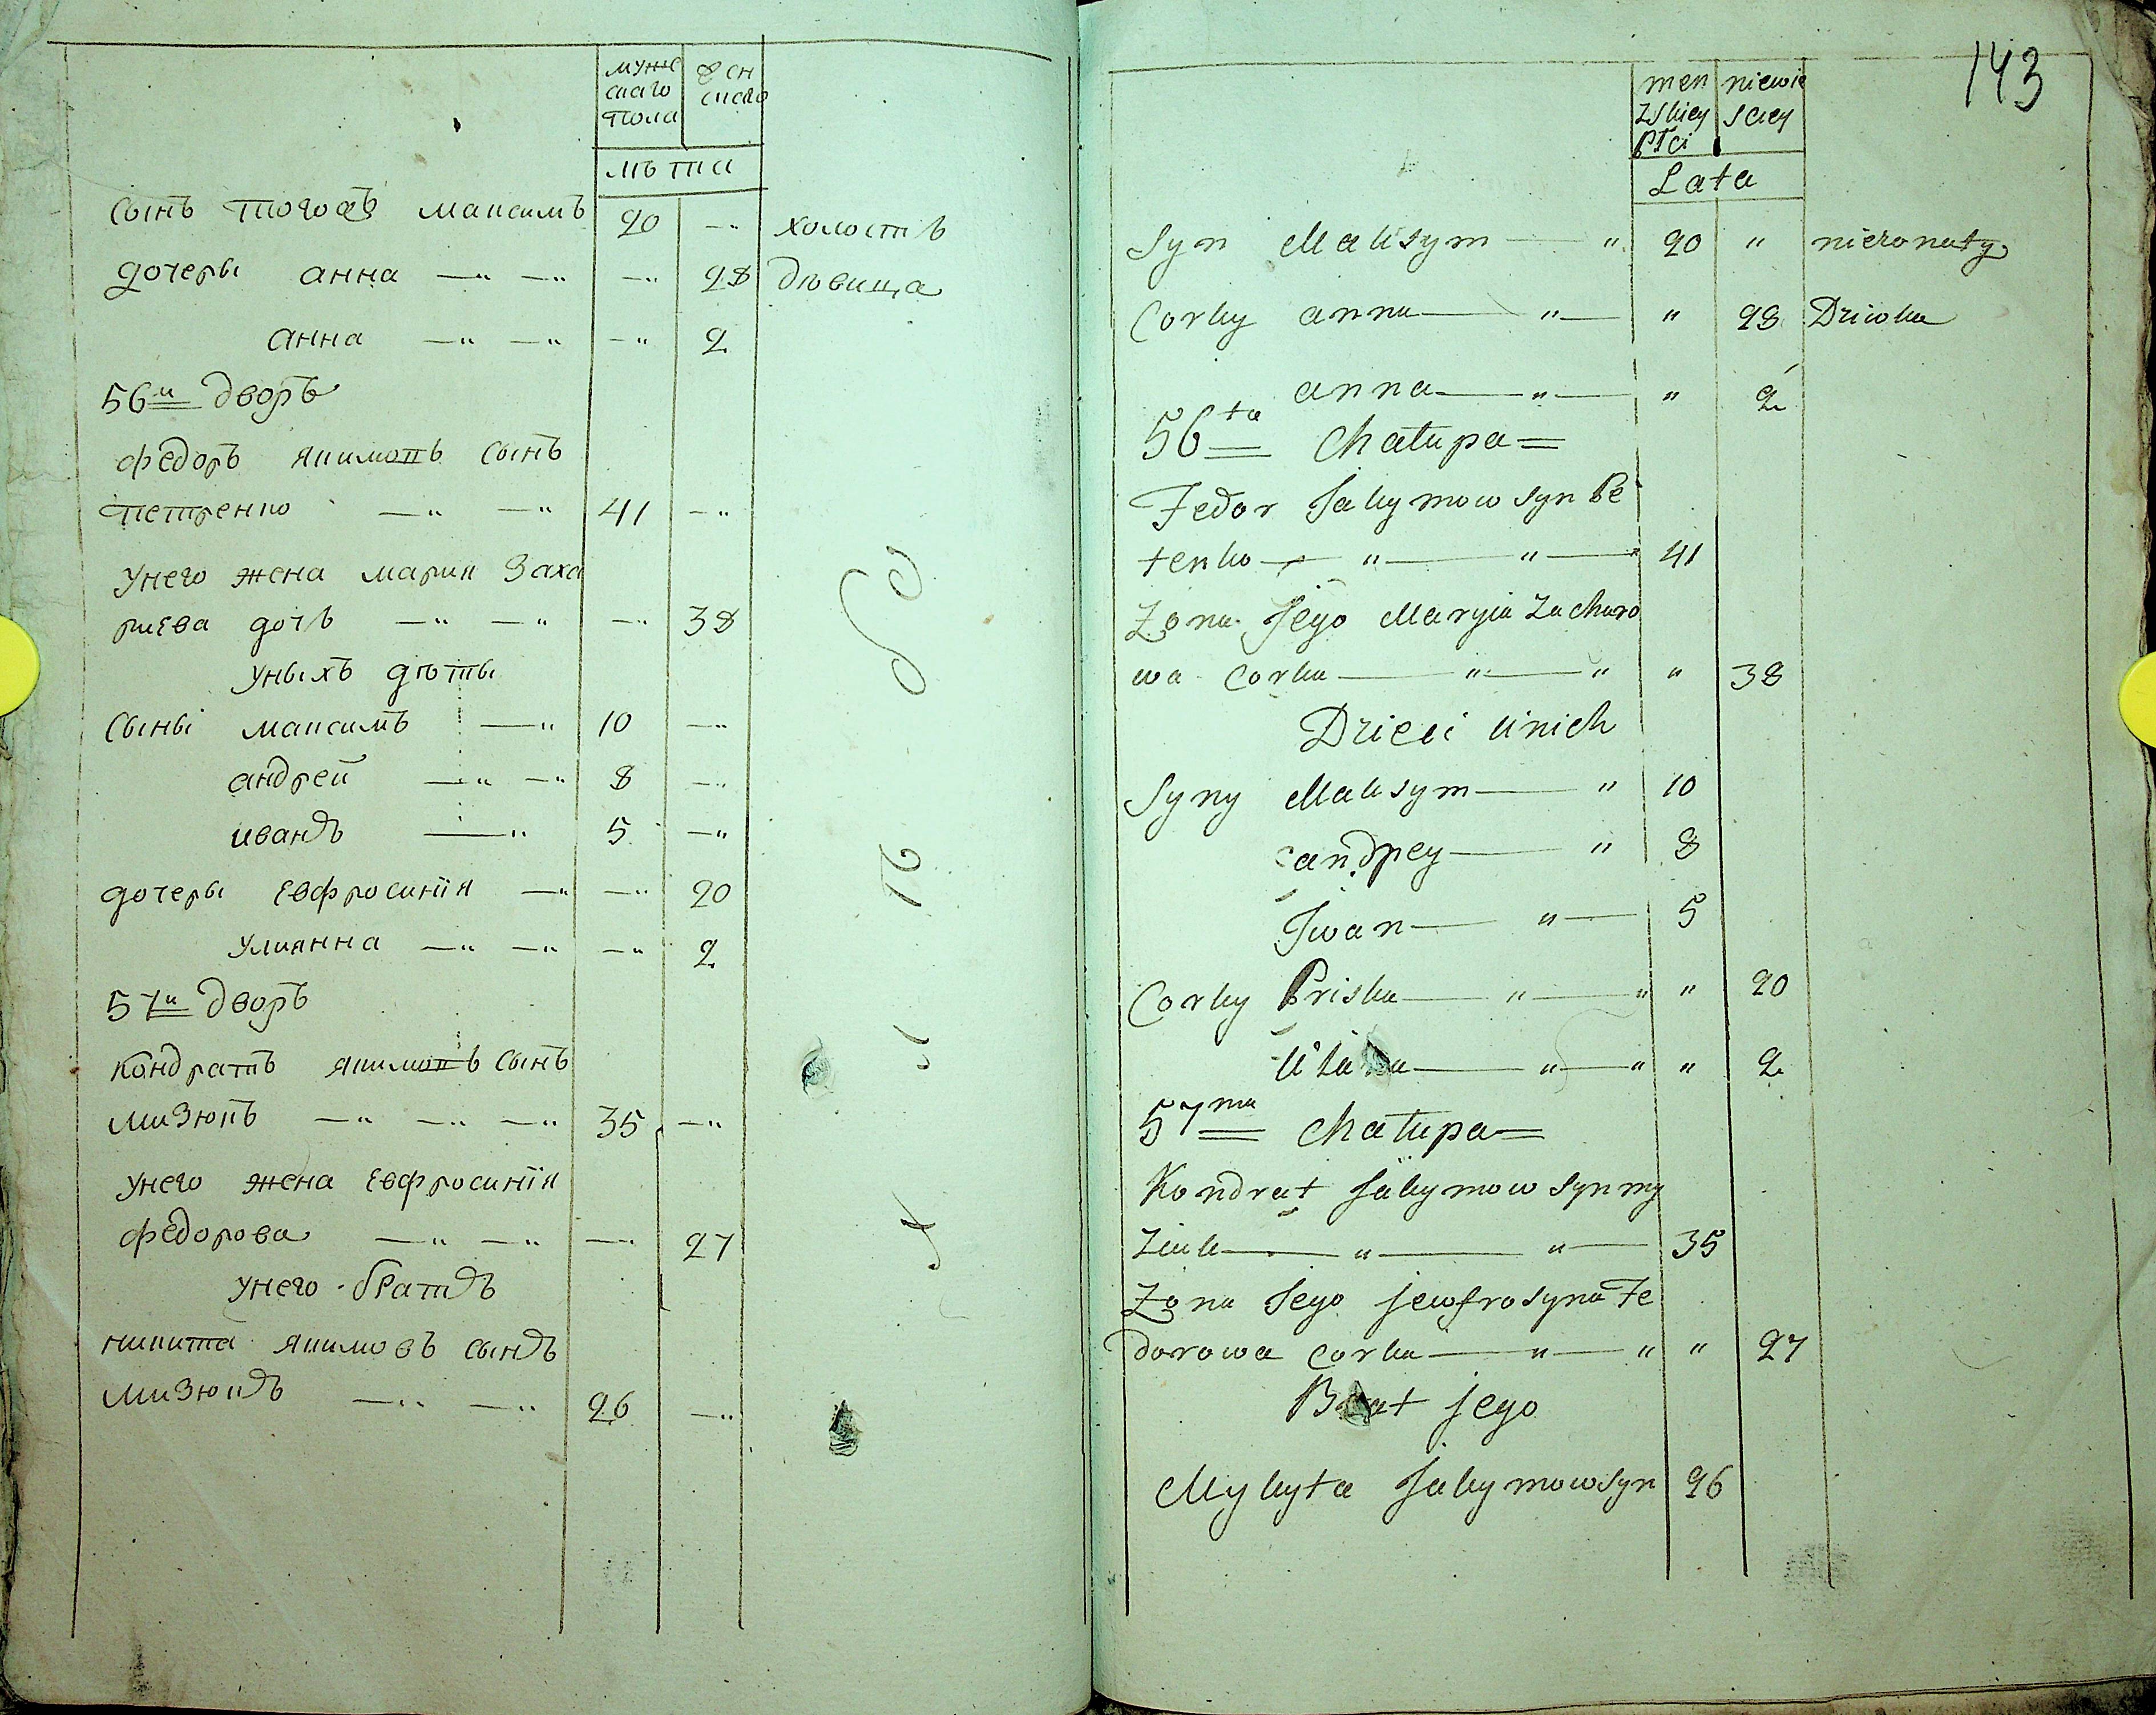 мужс женс
скаго скаго
пола
лѣта
сынъ тогожъ максимъ 20 —„ холостъ
дочеры анна —„ —„ —„ 28 дѣвица
анна —„ —„ —„ 2
56й дворъ
федоръ якимовъ сынъ
петренко —„ —„ 41 —„
унего жена мария Заха
риева дочъ —„ —„ —„ 38
уныхъ дѣты
сыны максимъ —„ 10 —„
андрей —„ —„ 8 —„
иванъ —„ 5 —„
дочеры Евфросинія —„ —„ 20
улиянна —„ —„ —„ 2
57й дворъ
кондратъ якимовъ сынъ
мизюкъ —„ —„ —„ 35 —„
унего жена Евфросинія
федорова —„ —„ —„ 27
унего братъ
никита якимовъ сынъ
мизюкъ —„ —„ 26 —„
143
men niewie
zskiey sciey
płci
Lata
Syn Maksym — „ 20 „ nieżonaty
Corky anna — „ — „ 28 Dziwka
anna — „ — „ 2
56ta Chałupa =
Fedor Jakymow syn Pe
tenko — „ — „ — 41
Żona Jego Maryia Zacharo
wa Corka — „ — „ „ 38
Dzieci unich
Syny Maksym — „ 10
andrey — „ 8
Jwan — „ — 5
Corky Priska — „ — „ „ 20
— „ — „ „ 2
57ma Chałupa =
Kondrat Jakymow syn my
ziuk — „ — „ — 35
Żona Jego jewfrosyna Fe
dorowa Corka — „ — „ „ 27
Brat jego
Mykyta Jakymow syn 26